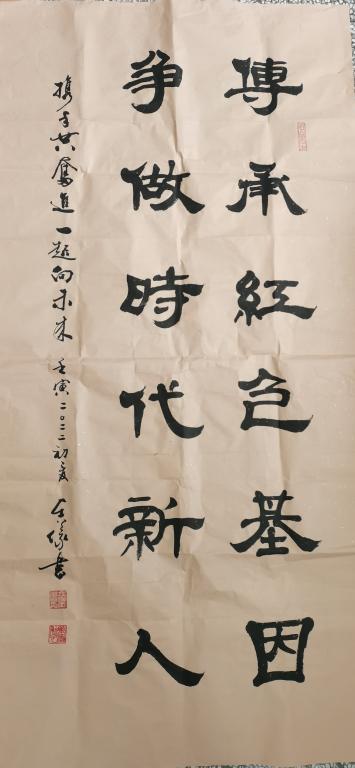 傳承紅色基因
争做時代新人
携手共奮進一起向未来 壬寅二〇二二初夏